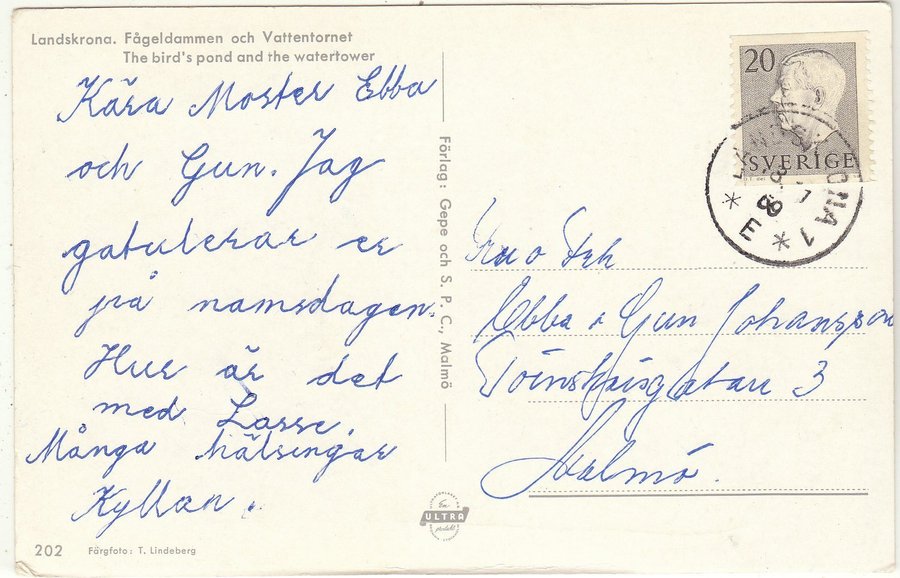 Landskrona. Fågeldammen och Vattentornet
The bird's pond and the watertower
Kära Moster Ebba
och Gun. Jag
gatulerar er
på namsdagen.
Hur är det
med Lasse.
Många hälsingar
Kyllan.
202 Färgfoto: T. Lindeberg
Förlag: Gepe och S. P. C., Malmö
En
ULTRA
produkt
20
SVERIGE
LANDSKRONA 1
E
Fru o Frk
Ebba o Gun Johansson
3
Malmö.